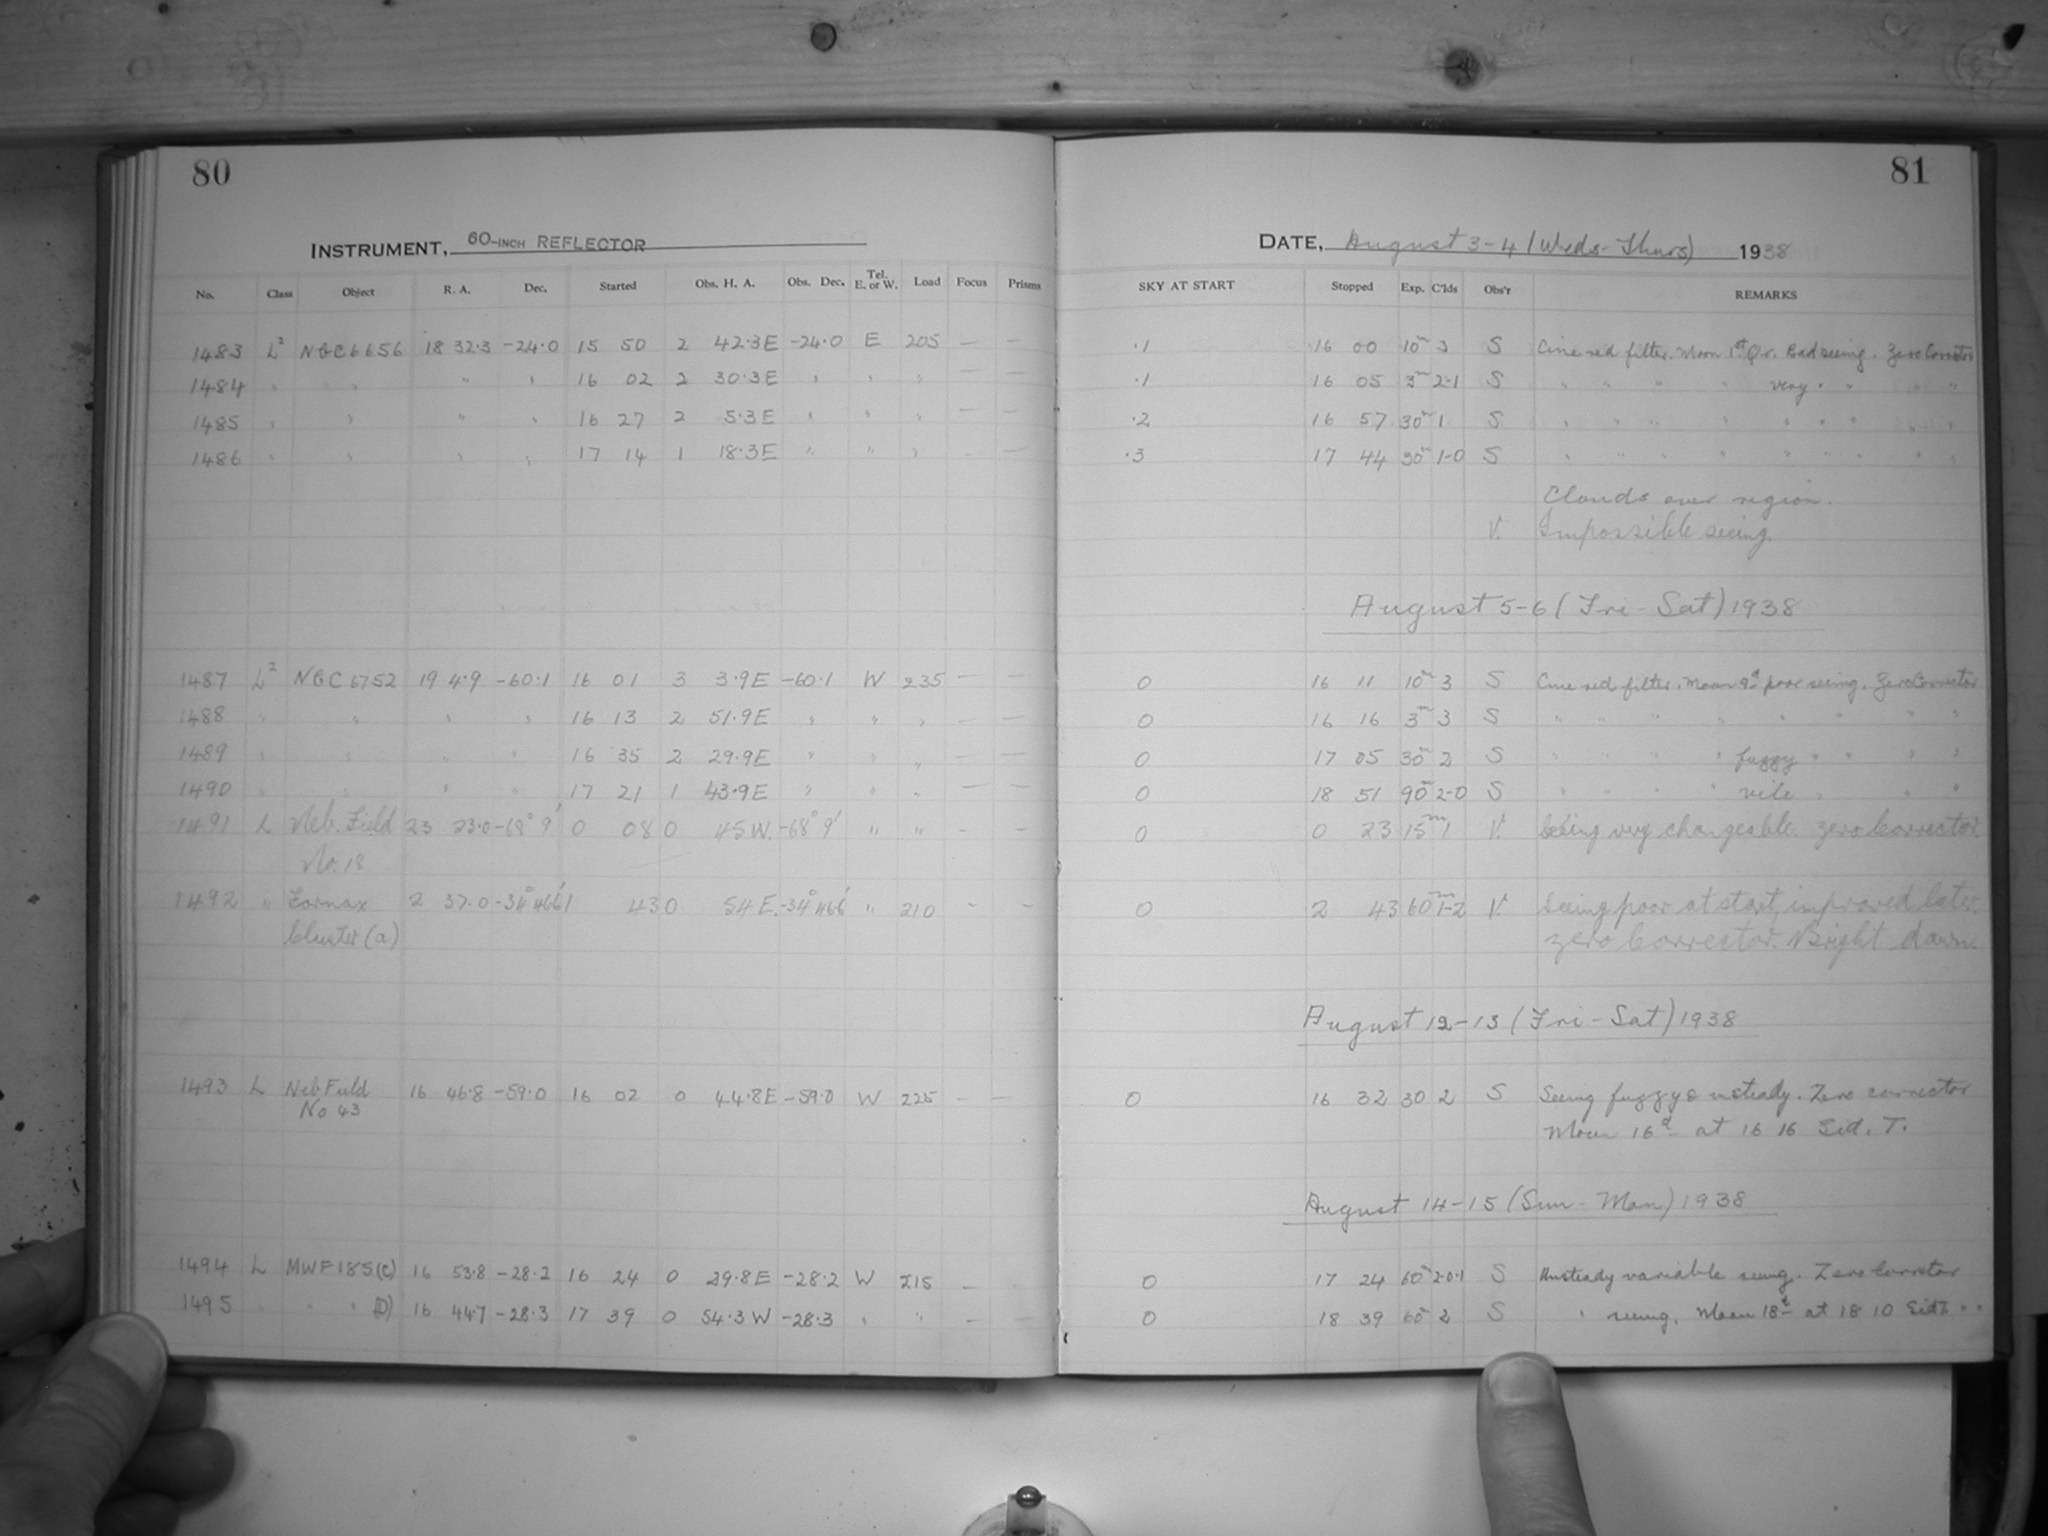 80
INSTRUMENT, 60-INCH REFLECTOR
No. Class Object R. A. Dec. Started Obs. H. A. Obs. Dec. Tel. E. or W. Load Focus Prisms
1483 L² NGC6656 18 32.3 -24.0 15 50 2 42.3E -24.0 E 205 — —
1484 " " " " 16 02 2 30.3E " " " — —
1485 " " " " 16 27 2 5.3E " " " — —
1486 " " " " 17 14 1 18.3E " " " — —
1487 L² NGC6752 19 4.9 -60.1 16 01 3 3.9E -60.1 W 235 — —
1488 " " " " 16 13 2 51.9E " " " — —
1489 " " " " 16 35 2 29.9E " " " — —
1490 " " " " 17 21 1 43.9E " " " — —
1491 L Neb. Field 23 23.0 -68° 9' 0 08 0 45 W. -68° 9' " " — —
No. 18
1492 " Fornax 2 37.0 -34° 46.6' 1 43 0 54 E. -34° 46.6' " 210 — —
Cluster (a)
1493 L Neb Field 16 46.8 -59.0 16 02 0 44.8E -59.0 W 225 — —
No 43
1494 L MWF185(C) 16 53.8 -28.2 16 24 0 29.8E -28.2 W 215 — —
1495 " " " (D) 16 44.7 -28.3 17 39 0 54.3 W -28.3 " " — —
81
DATE, August 3-4 (Weds-Thurs) 1938
SKY AT START Stopped Exp. C'lds Obs'r REMARKS
.1 16 00 10ᵐ 3 S Cine red filter. Moon 1st Qr. Bad seeing. Zero Corrector
.1 16 05 3ᵐ 2-1 S " " " " very " " " "
.2 16 57 30ᵐ 1 S " " " " " " " " "
.3 17 44 30ᵐ 1-0 S " " " " " " " " "
Clouds over region.
V. Impossible seeing.
August 5-6 (Fri-Sat) 1938
0 16 11 10ᵐ 3 S Cine red filter. Moon 9ᵈ poor seeing. Zero Corrector
0 16 16 3ᵐ 3 S " " " " " " " "
0 17 05 30ᵐ 2 S " " " " fuzzy " " " "
0 18 51 90ᵐ 2-0 S " " " " vile " " "
0 0 23 15ᵐ 1 V. Seeing very changeable. Zero Corrector.
0 2 43 60ᵐ 1-2 V. Seeing poor at start, improved later.
Zero Corrector. Bright dawn.
August 12-13 (Fri-Sat) 1938
0 16 32 30 2 S Seeing fuzzy & unsteady. Zero corrector
Moon 16ᵈ at 16 16 Sid. T.
August 14-15 (Sun-Mon) 1938
0 17 24 60ᵐ 2-0-1 S Unsteady variable seeing. Zero Corrector
0 18 39 60ᵐ 2 S " seeing. Moon 18ᵈ at 18 10 Sid T. " "